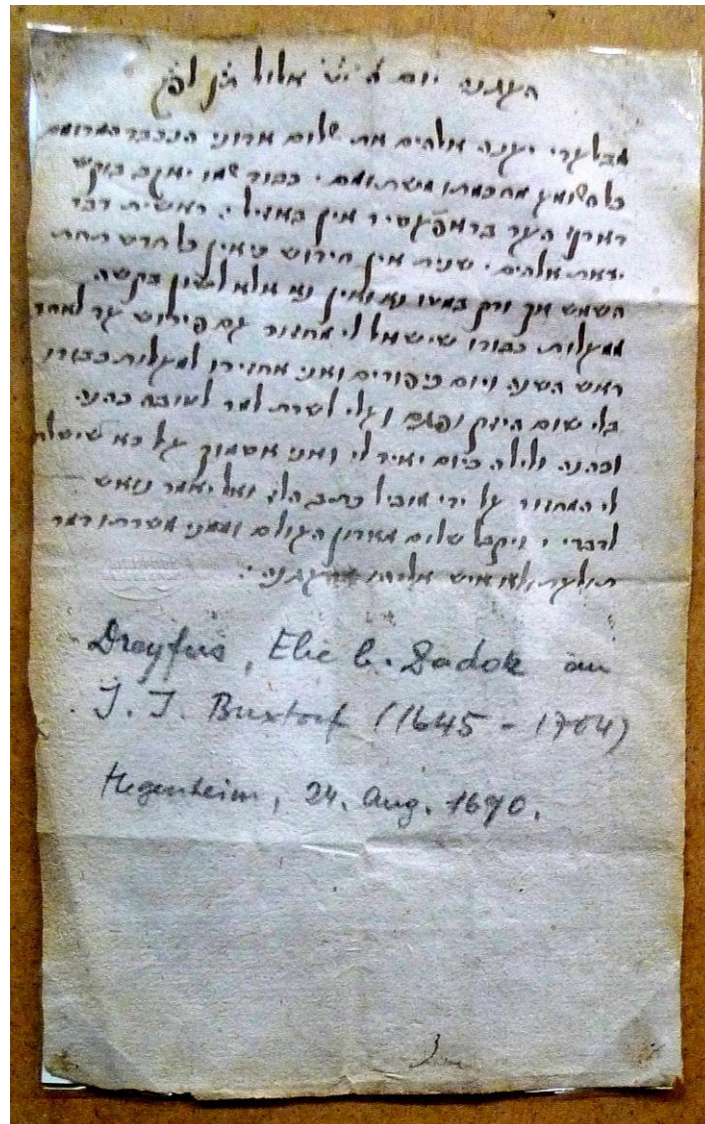 העגנה יום ה' י"ט אלול ת"ן לפ"ק
מבלעדי יענה אלהים את שלום אדוני הנכבד המרומם
כל השומע מחכמתו משתומם · כבוד שמו יאקב בוקש
דארף הער בראפעסיר אין באזיל · ראשית דבר
יראת אלהים · שנית אין חידוש כי אין כל חדש תחת
השמש אך ורק במטו נא ואין נא אלא לשון בקשה
ממעלות כבודו שישאל לי מחזור עם פירוש על לאחר
ראש השנה ויום כיפורים ואני אחזירו למעלות כבודו
בלי שום היזק ופגם ועלי לשרת למר לטובה כהנה
וכהנה ולילה כיום יאיר לי ואני אסמוך על זה שישלח
לי המחזור על ידי מוביל כתב הלז ואל יאמר נואש
לדברי · ויקבל שלום מאדון העולם וממני משרתו דמר
תולעת ולא איש אליהו העגנה ·
Dreyfus, Elie b. Zadok an
J. J. Buxtorf (1645 - 1704)
Hegenheim, 24. Aug. 1690.